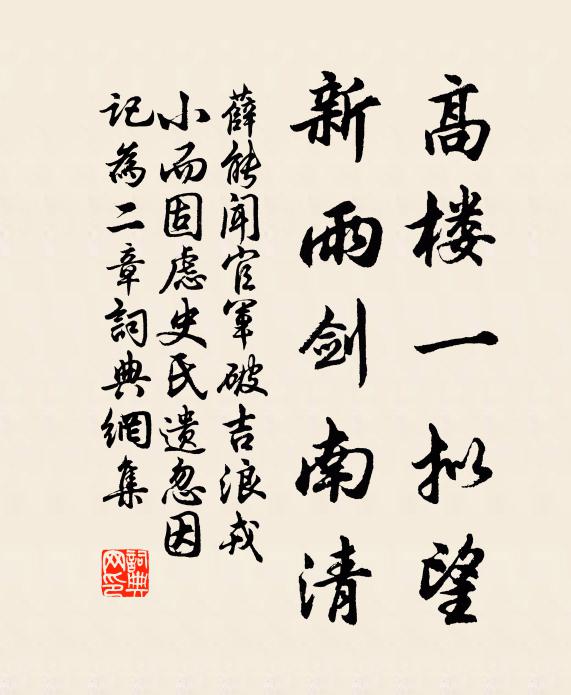 高楼一拟望
新雨剑南清
薛能闻官军破吉浪戎
小而固虑史氏遗忽因
记为二章詞典網集
詞典网印